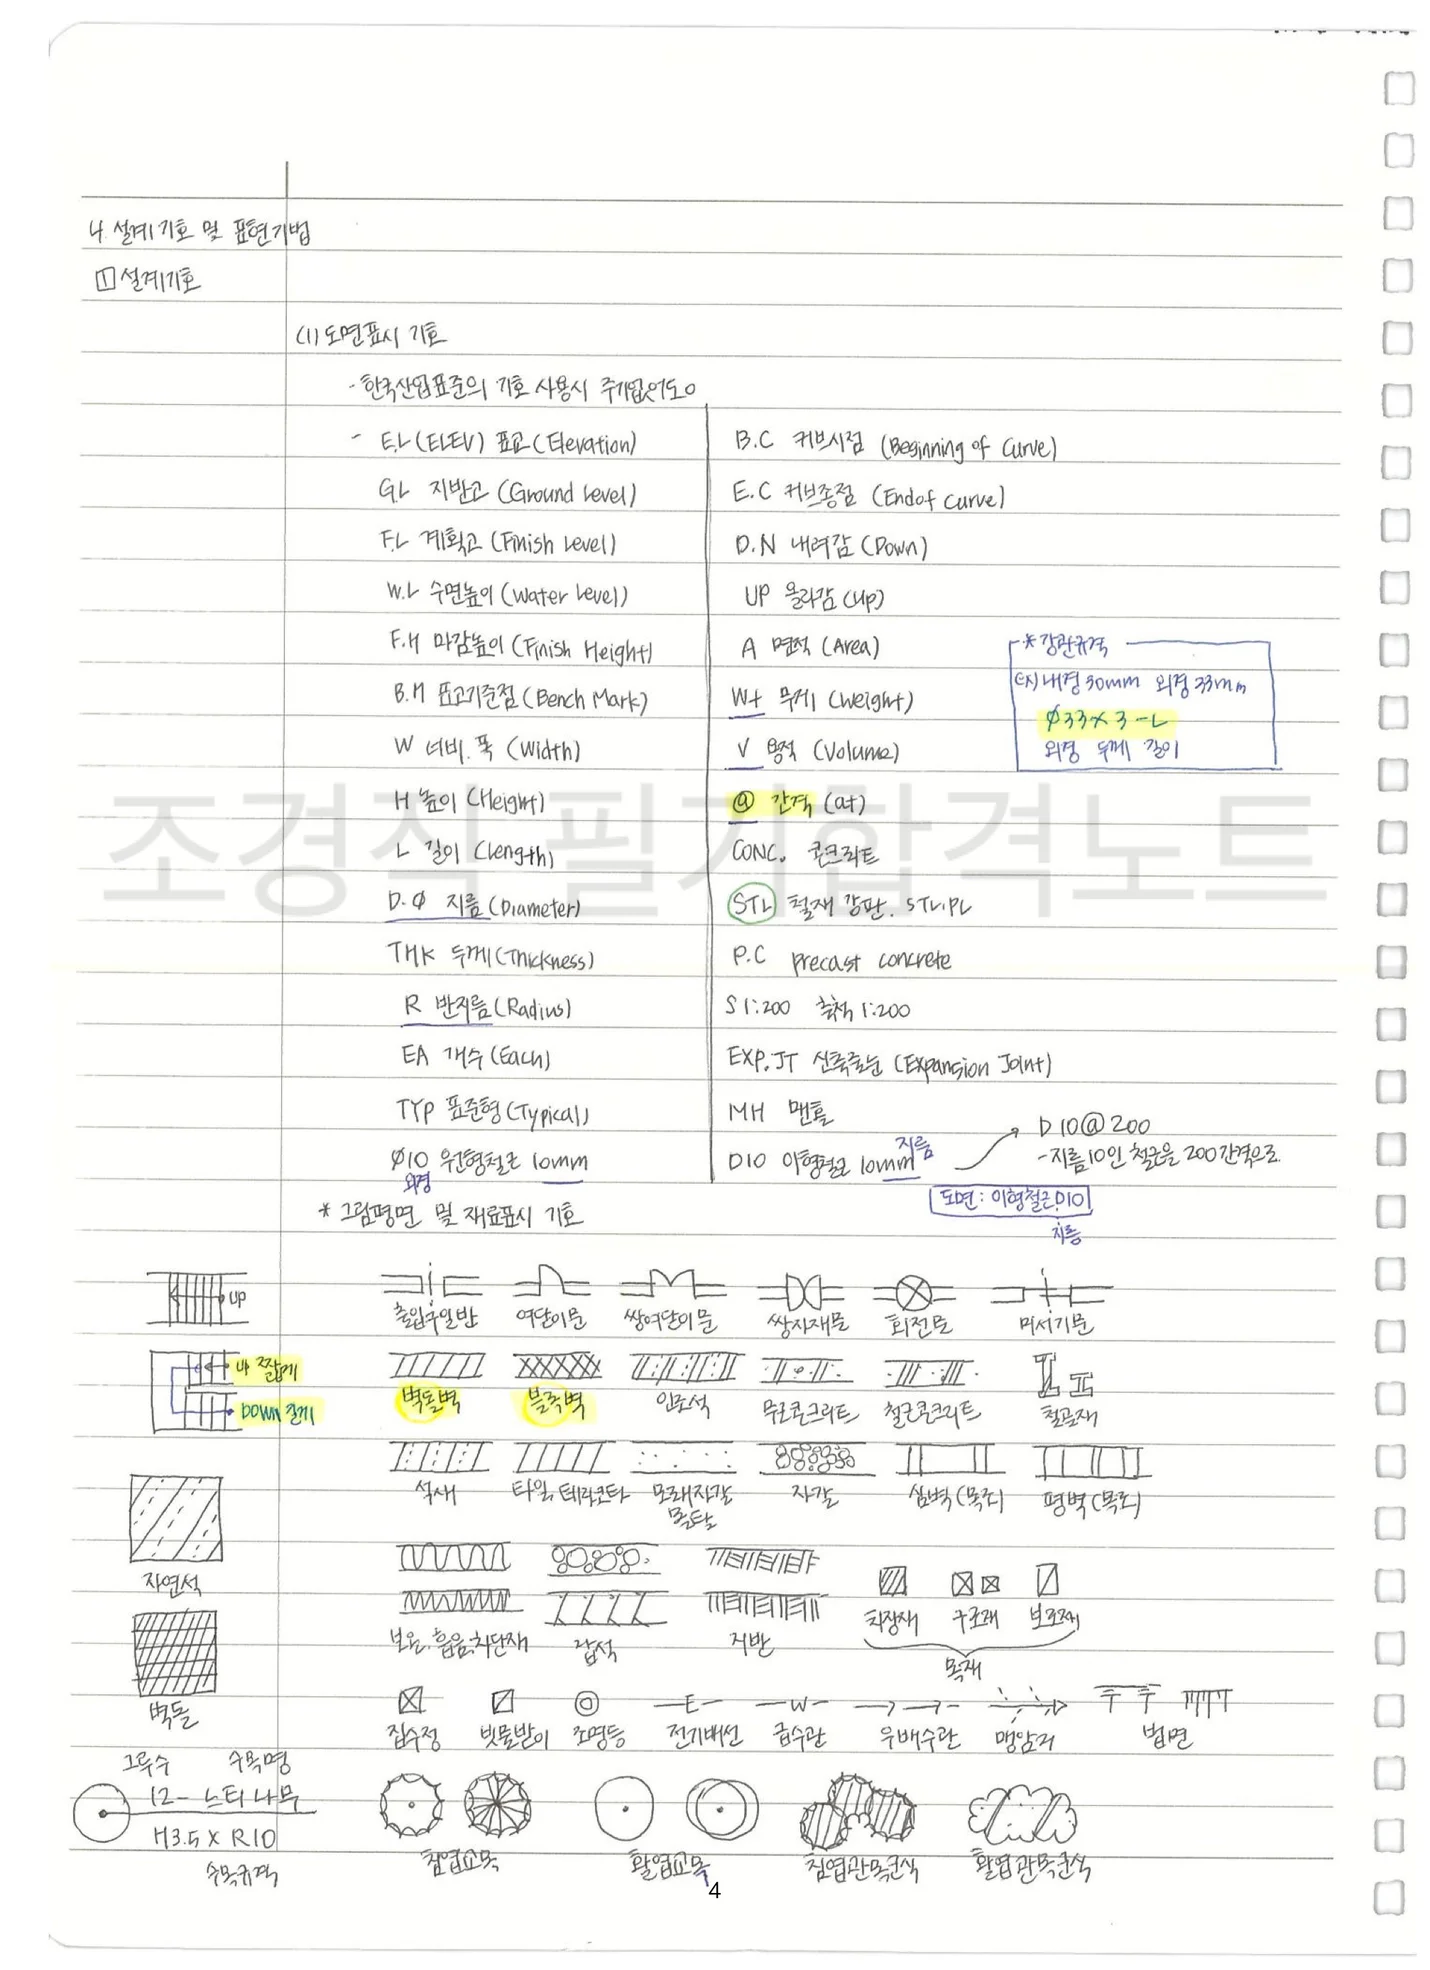 4. 설계기호 및 표현기법
1 설계기호
(1) 도면표시 기호
- 한국산업표준의 기호 사용시 주기없어도 o
- E.L (ELEV) 표고 (Elevation)
G.L 지반고 (Ground Level)
F.L 계획고 (Finish Level)
W.L 수면높이 (Water Level)
F.H 마감높이 (Finish Height)
B.M 표고기준점 (Bench Mark)
W 너비.폭 (Width)
H 높이 (Height)
L 길이 (Length)
D.Ø 지름 (Diameter)
THK 두께 (Thickness)
R 반지름 (Radius)
EA 개수 (Each)
TYP 표준형 (Typical)
Ø10 원형철근 10mm
외경
B.C 커브시점 (Beginning of Curve)
E.C 커브종점 (End of curve)
D.N 내려감 (Down)
UP 올라감 (up)
A 면적 (Area)
Wt 무게 (Weight)
V 용적 (Volume)
@ 간격 (at)
CONC. 콘크리트
STL 철재 강판. STL.PL
P.C precast concrete
S 1:200 축척 1:200
EXP.JT 신축줄눈 (Expansion Joint)
MH 맨홀
D10 이형철근 10mm
지름
* 강관규격
ex) 내경 30mm 외경 33mm
Ø33 x 3 - L
외경 두께 길이
D10@200
- 지름10인 철근을 200간격으로
도면 : 이형철근 D10
지름
* 그림평면 및 재료표시 기호
UP
출입구일반 여닫이문 쌍여닫이문 쌍지재문 회전문 미서기문
UP 짧게
DOWN 길게
벽돌벽 블록벽 인조석 무근콘크리트 철근콘크리트 철골재
석재 타일, 테라코타 모래자갈 자갈 심벽 (목조) 평벽 (목조)
몰탈
자연석
보온.흡음.차단재 잡석 지반 치장재 구조재 보조재
목재
벽돌
E W
집수정 빗물받이 조명등 전기배선 급수관 우배수관 맹암거 법면
그루수 수목명
12- 느티나무
H3.5 x R10
수목규격
침엽교목 활엽교목 침엽관목군식 활엽관목군식
4
조경직 필기합격노트